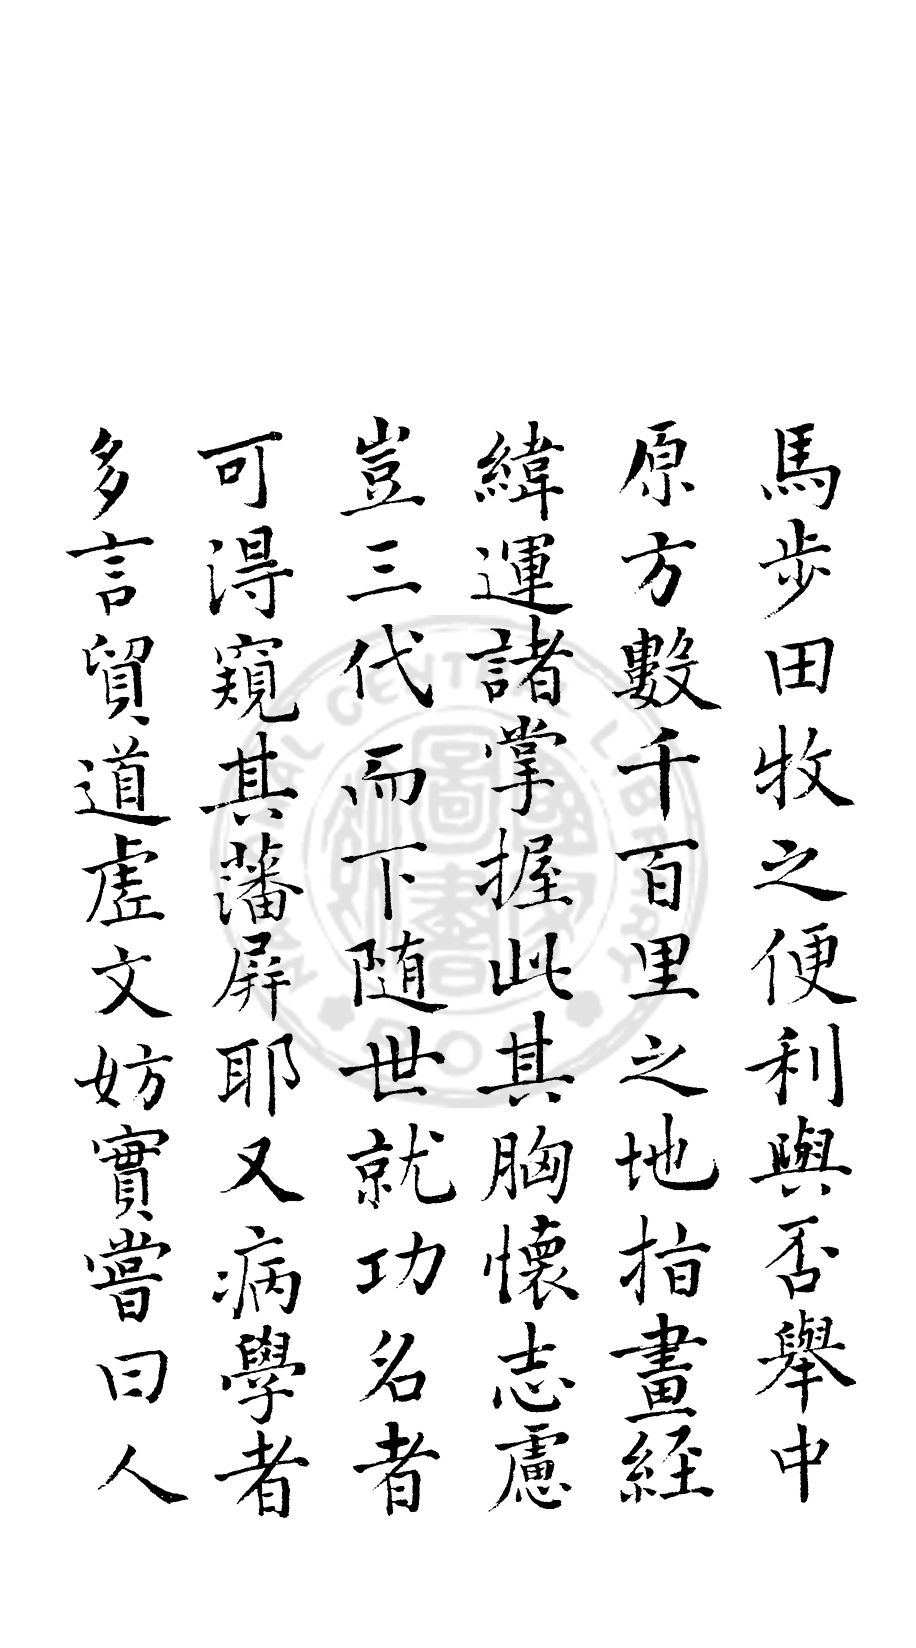 馬步田牧之便利與否舉中
原方數千百里之地指畫經
緯運諸掌握此其胸懷志慮
豈三代而下随世就功名者
可得窺其藩屏耶又病學者
多言貿道虛文妨實嘗曰人
NATIONAL CENTRAL LIBRARY